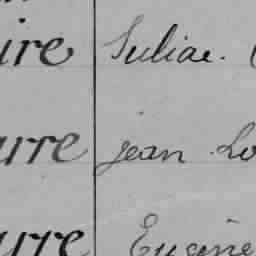 ire Suliac. (
rre jean Lo
rre Eugène